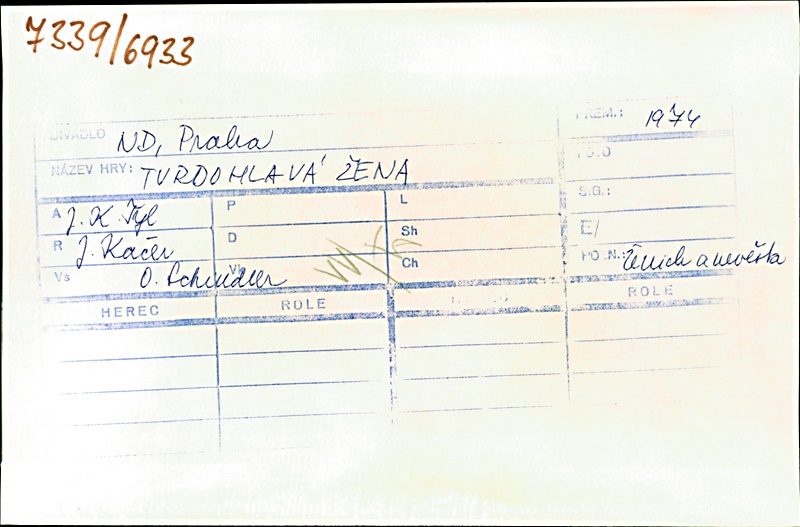 7339/6933
DIVADLO ND, Praha
PREM.: 1974
NÁZEV HRY: TVRDOHLAVÁ ŽENA
A J. K. Tyl P L
S.G.:
R J. Kačer D Sh
E/
Vs O. Schindler Ch
POZN.: Ženich a nevěsta
HEREC ROLE ROLE